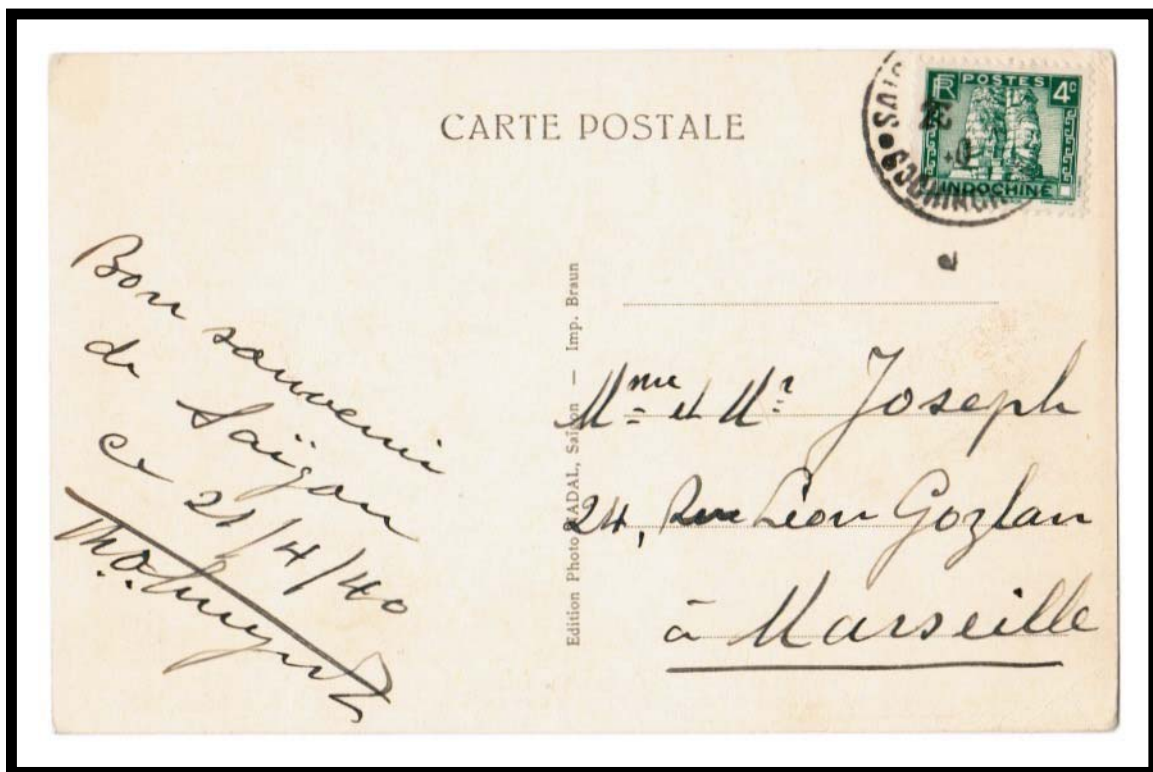 CARTE POSTALE
RF POSTES 4c
INDOCHINE
Bon souvenir
de Saïgon
ce 21/4/40
Edition Photo NADAL, Saïgon — Imp. Braun
Mme et Mr Joseph
24, Rue Léon Gozlan
à Marseille